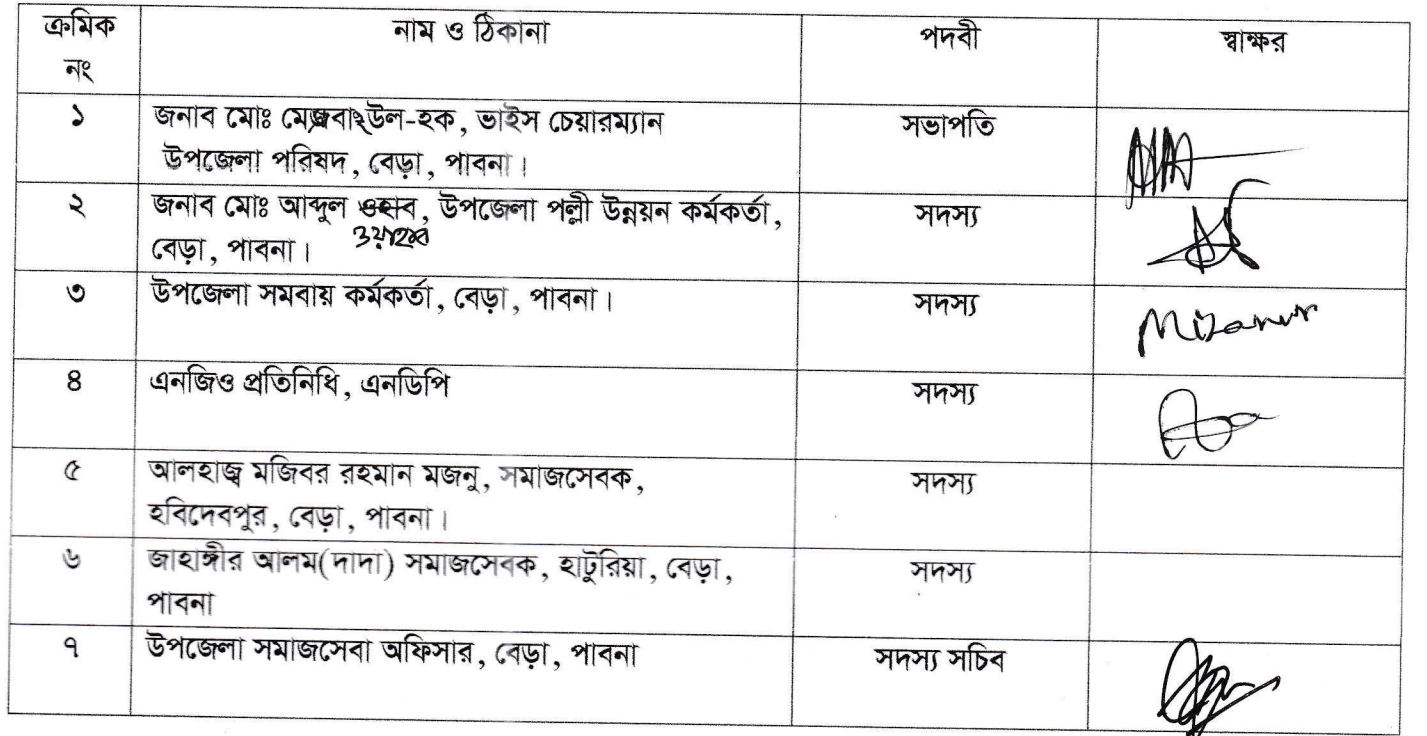 ক্রমিক নাম ও ঠিকানা পদবী স্বাক্ষর
নং
১ জনাব মোঃ মেজবাহউল-হক, ভাইস চেয়ারম্যান সভাপতি
উপজেলা পরিষদ, বেড়া, পাবনা।
২ জনাব মোঃ আব্দুল ওহাব, উপজেলা পল্লী উন্নয়ন কর্মকর্তা, সদস্য
বেড়া, পাবনা। ওয়াহাব
৩ উপজেলা সমবায় কর্মকর্তা, বেড়া, পাবনা। সদস্য
Mizanur
৪ এনজিও প্রতিনিধি, এনডিপি সদস্য
৫ আলহাজ্ব মজিবর রহমান মজনু, সমাজসেবক, সদস্য
হবিদেবপুর, বেড়া, পাবনা।
৬ জাহাঙ্গীর আলম(দাদা) সমাজসেবক, হাটুরিয়া, বেড়া, সদস্য
পাবনা
৭ উপজেলা সমাজসেবা অফিসার, বেড়া, পাবনা সদস্য সচিব